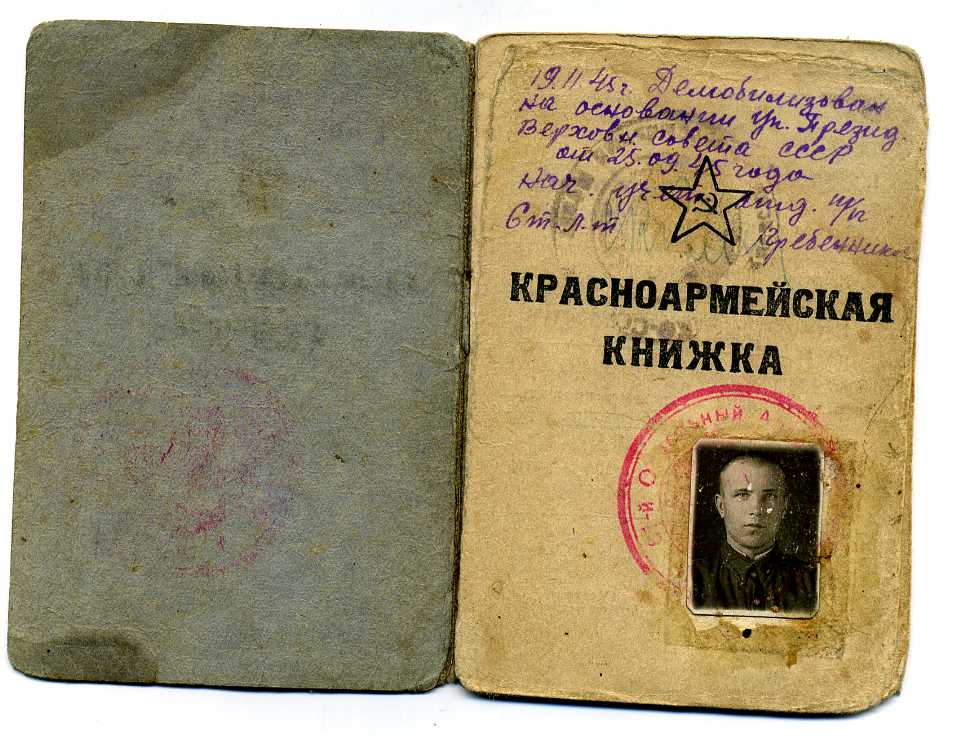 19.11.45г. Демобилизован
на основании ук. Презид.
Верховн. совета СССР
от 25.09.45 года
нач. отд. п/п
Ст. л-т Гребенников
КРАСНОАРМЕЙСКАЯ
КНИЖКА